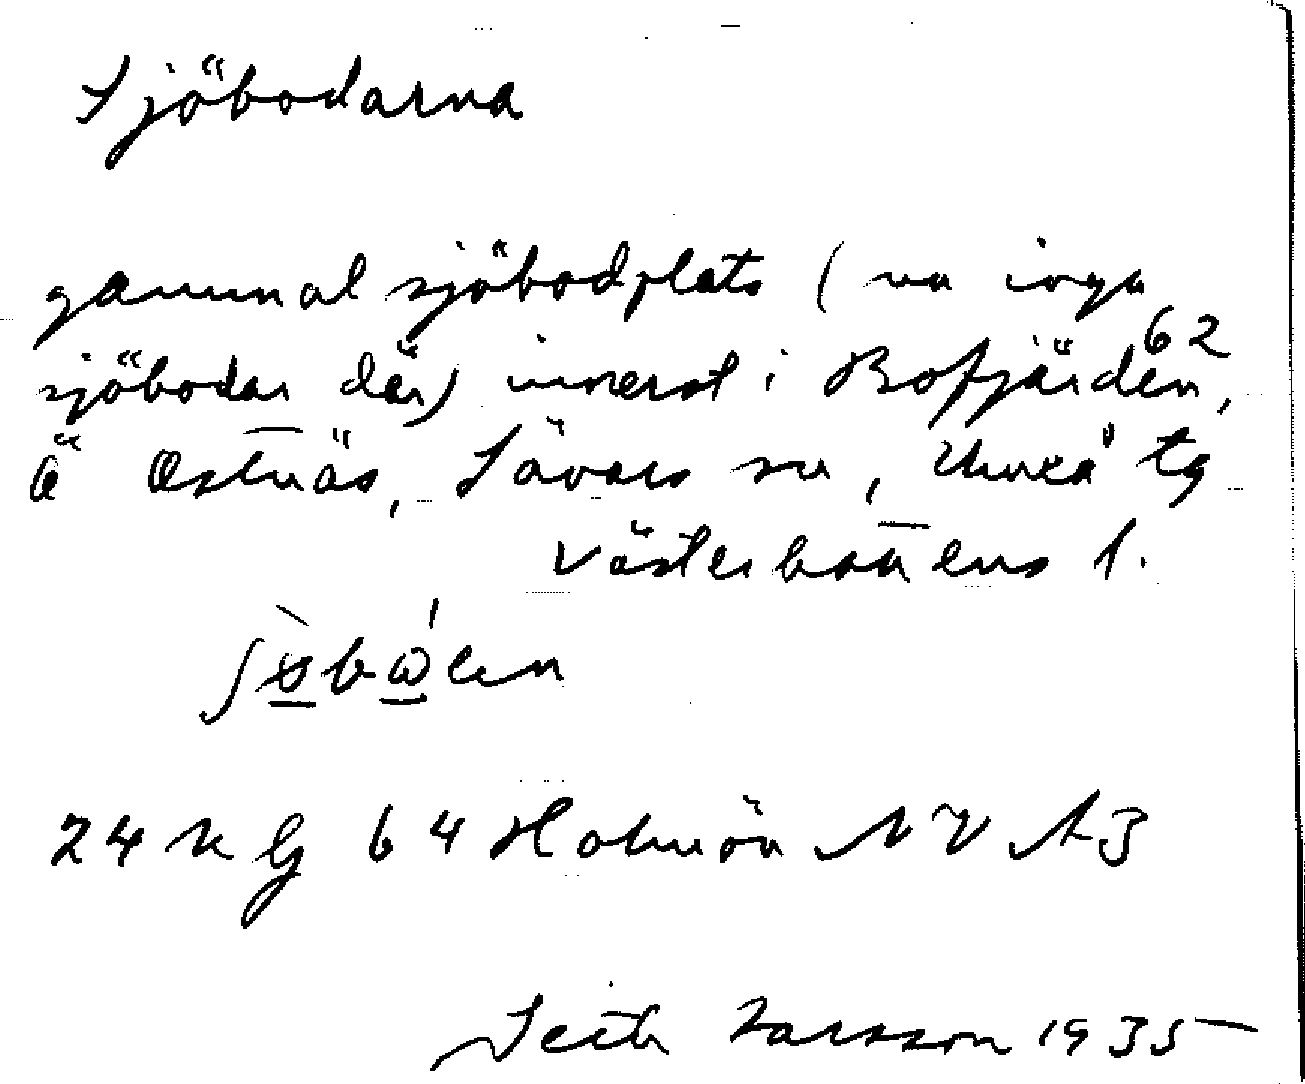 Sjöbodarna
gammal sjöbodplats (nu inga
sjöbodar där) innerst i Bofjärden 62,
Ö Ostnäs, Sävars sn, Umeå tg
Västerbottens l.
24 K g 64 Holmön NV A3
Seth Larsson 1935